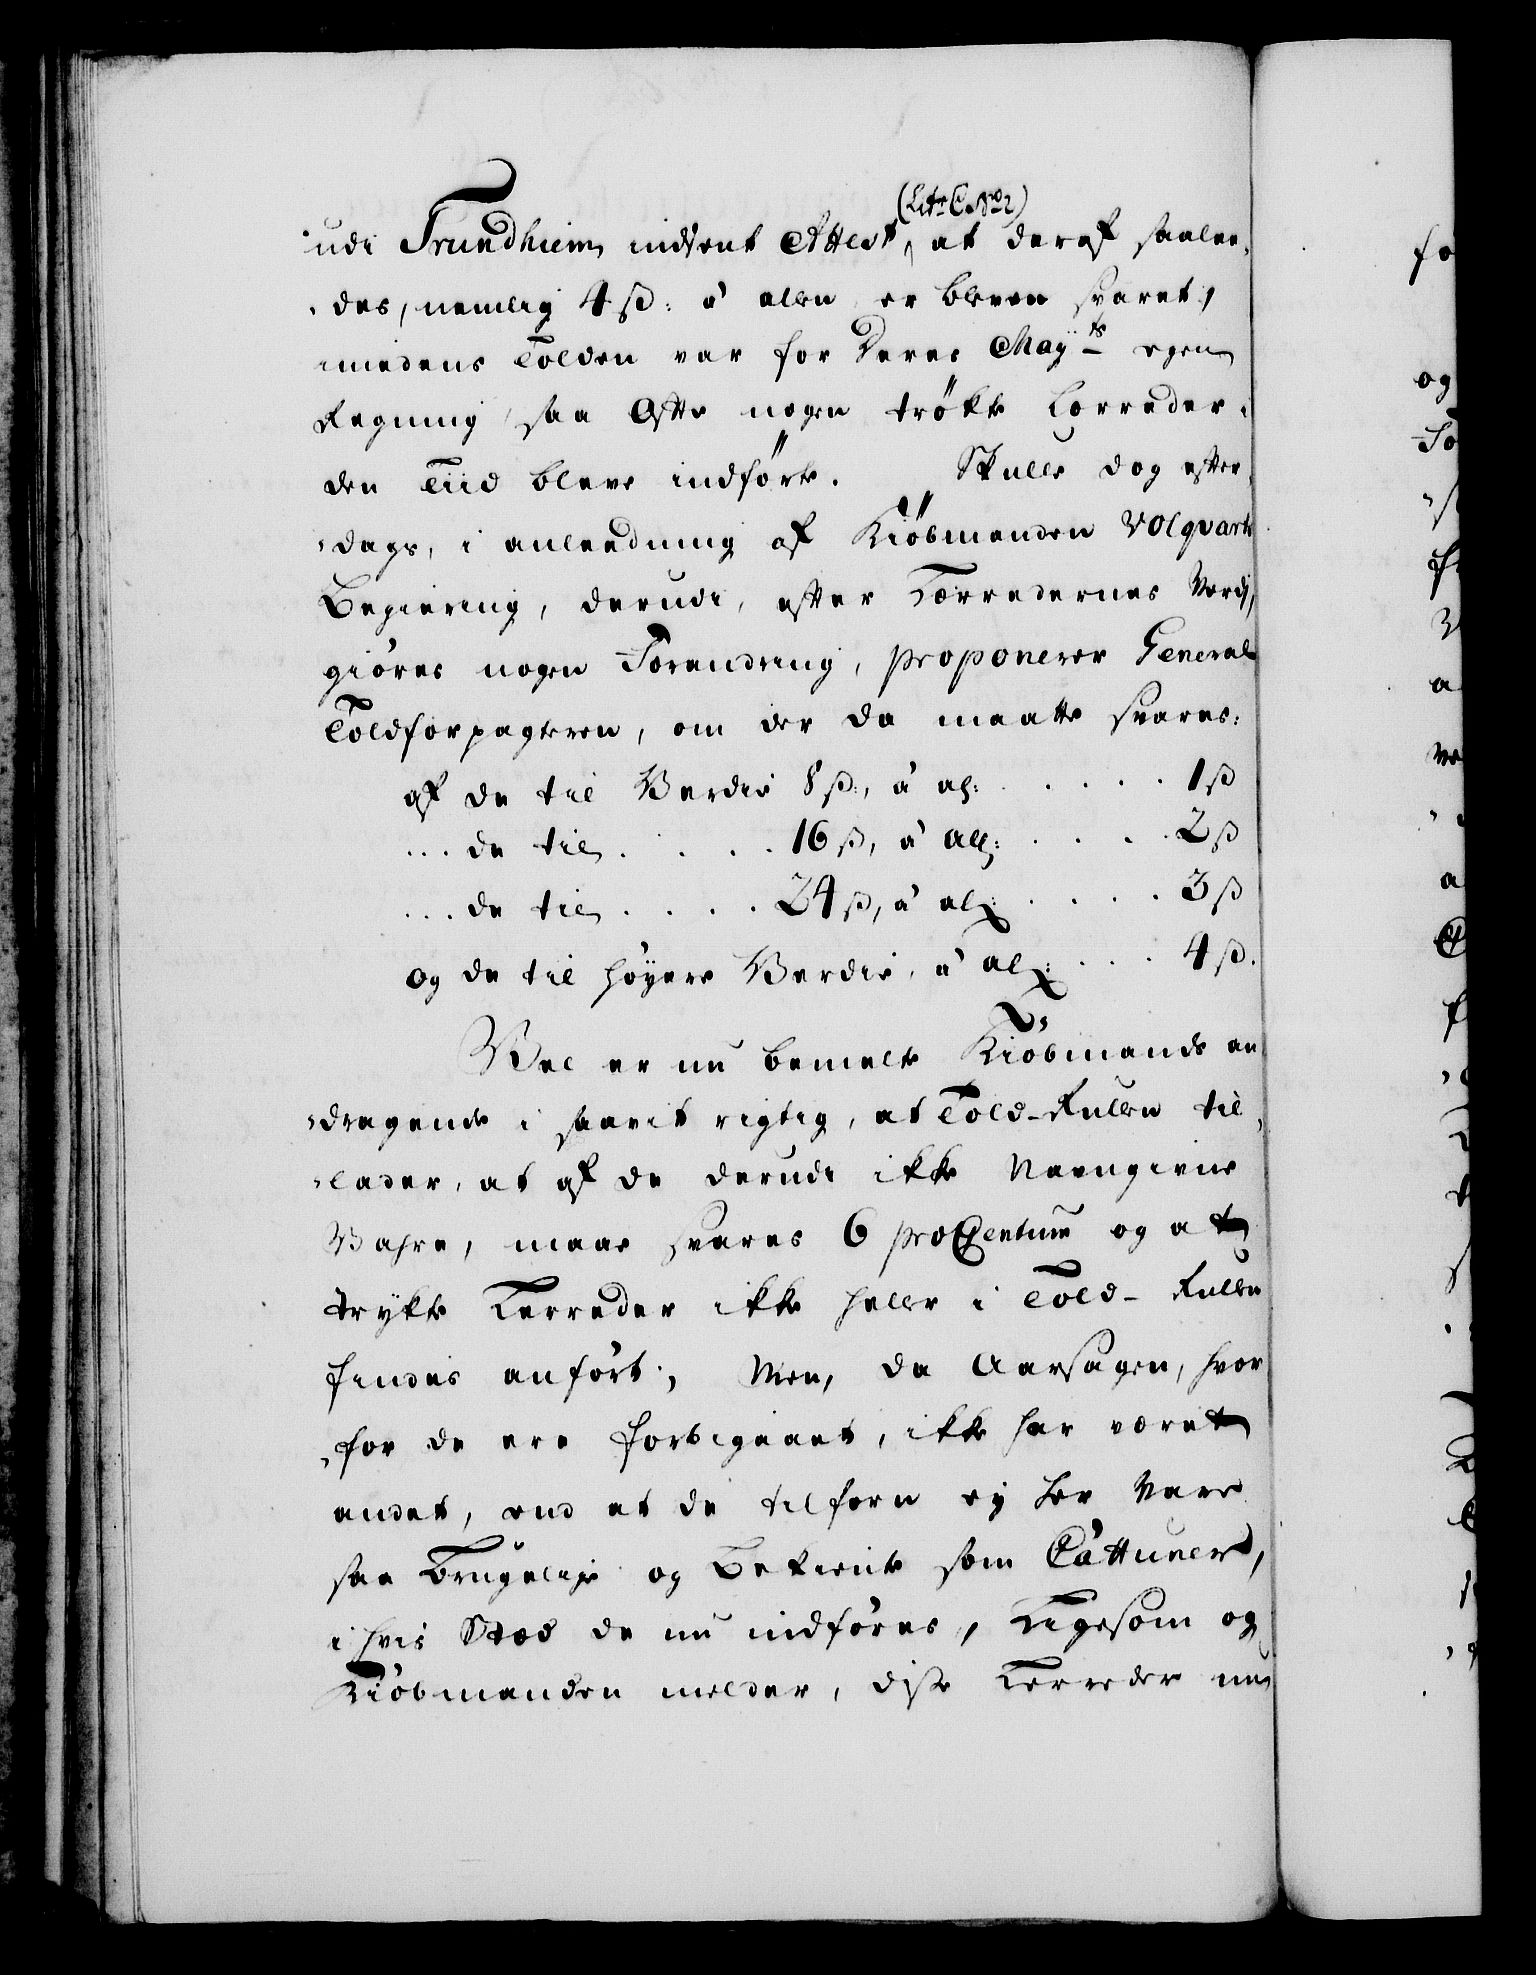 (Litr: C. No 2)
udi Trundhiem indsent Attest, at deraf saalee-
des, nemlig 4 ß: á allen er bleven svaret,
imedens Tolden var for Deres Mayts egen
Regning, saa Ofte nogen trökte Lærreder i
den Tiid bleve indförte. Skulle dog efter
dags, i anleedning af Kiöbmanden Volqvarts
Begiering, derudi, efter Lærredernes Verdj,
giöres nogen Forandring, proponerer General
Toldforpagteren, om der da maatte svares:
af de til Verdie 8 ß:, á al: . . . . . 1 ß
... de til . . . . 16 ß, á all: . . . . 2 ß
... de til . . . . 24 ß, á al: . . . . 3 ß
og de til höyere Verdie, á al: . . . 4 ß.
Vel er nu bemelte Kiöbmands an
dragende i saavit rigtig, at Told-Rullen til-
lader, at af de derudi ikke Navngivne
Vahre, maae svares 6 pro Centum og at
trykte Lerreder ikke heller i Told-Rullen
findes anfört; Men, da Aarsagen, hvor
for de ere forbigaaet, ikke har været
andet, end at de tilforn ey her vare
saa Brugelige og Bekiente som Cattuner,
i hvis Sted de nu indföres, Ligesom og
Kiöbmanden melder, disse Lerreder nu